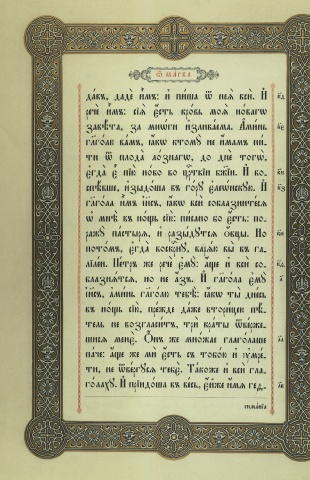 Ѿ МАРКА
давъ, даде имъ: и пиша ѿ нея вси. И
рече имъ: сїя есть кровь моя новагѡ
завѣта, за многи изливаема. Аминь
глаголю вамъ, ꙗкѡ ктому не имамъ пи-
ти ѿ плода лознагѡ, до дне тогѡ,
егда є пїю ново во цртвїи бжїи. И во-
спѣвше, изыдоша въ гору елеѡнскую. И
глагола имъ іисъ, ꙗкѡ вси соблазнитеся
ѡ мнѣ въ нощь сїю: писано бо есть: по-
ражу пастыря, и разыдутся ѻвцы. Но
потомъ, егда воскресну, варяю вы въ га-
лілеи. Петръ же рече ему: аще и вси со-
блазнятся, но не азъ. И глагола ему
іисъ, аминь глаголю тебѣ: ꙗкѡ ты днесь
въ нощь сїю, прежде даже вторицею пѣ-
тель не возгласитъ, три краты ѿверже-
шися мене. Онъ же множае глаголаше
паче: аще же ми есть съ тобою и умре-
ти, не ѿвергуся тебе. Такожде и вси гла-
голаху. И прїидоша въ весь, ейже имя геѳ-
симанїа